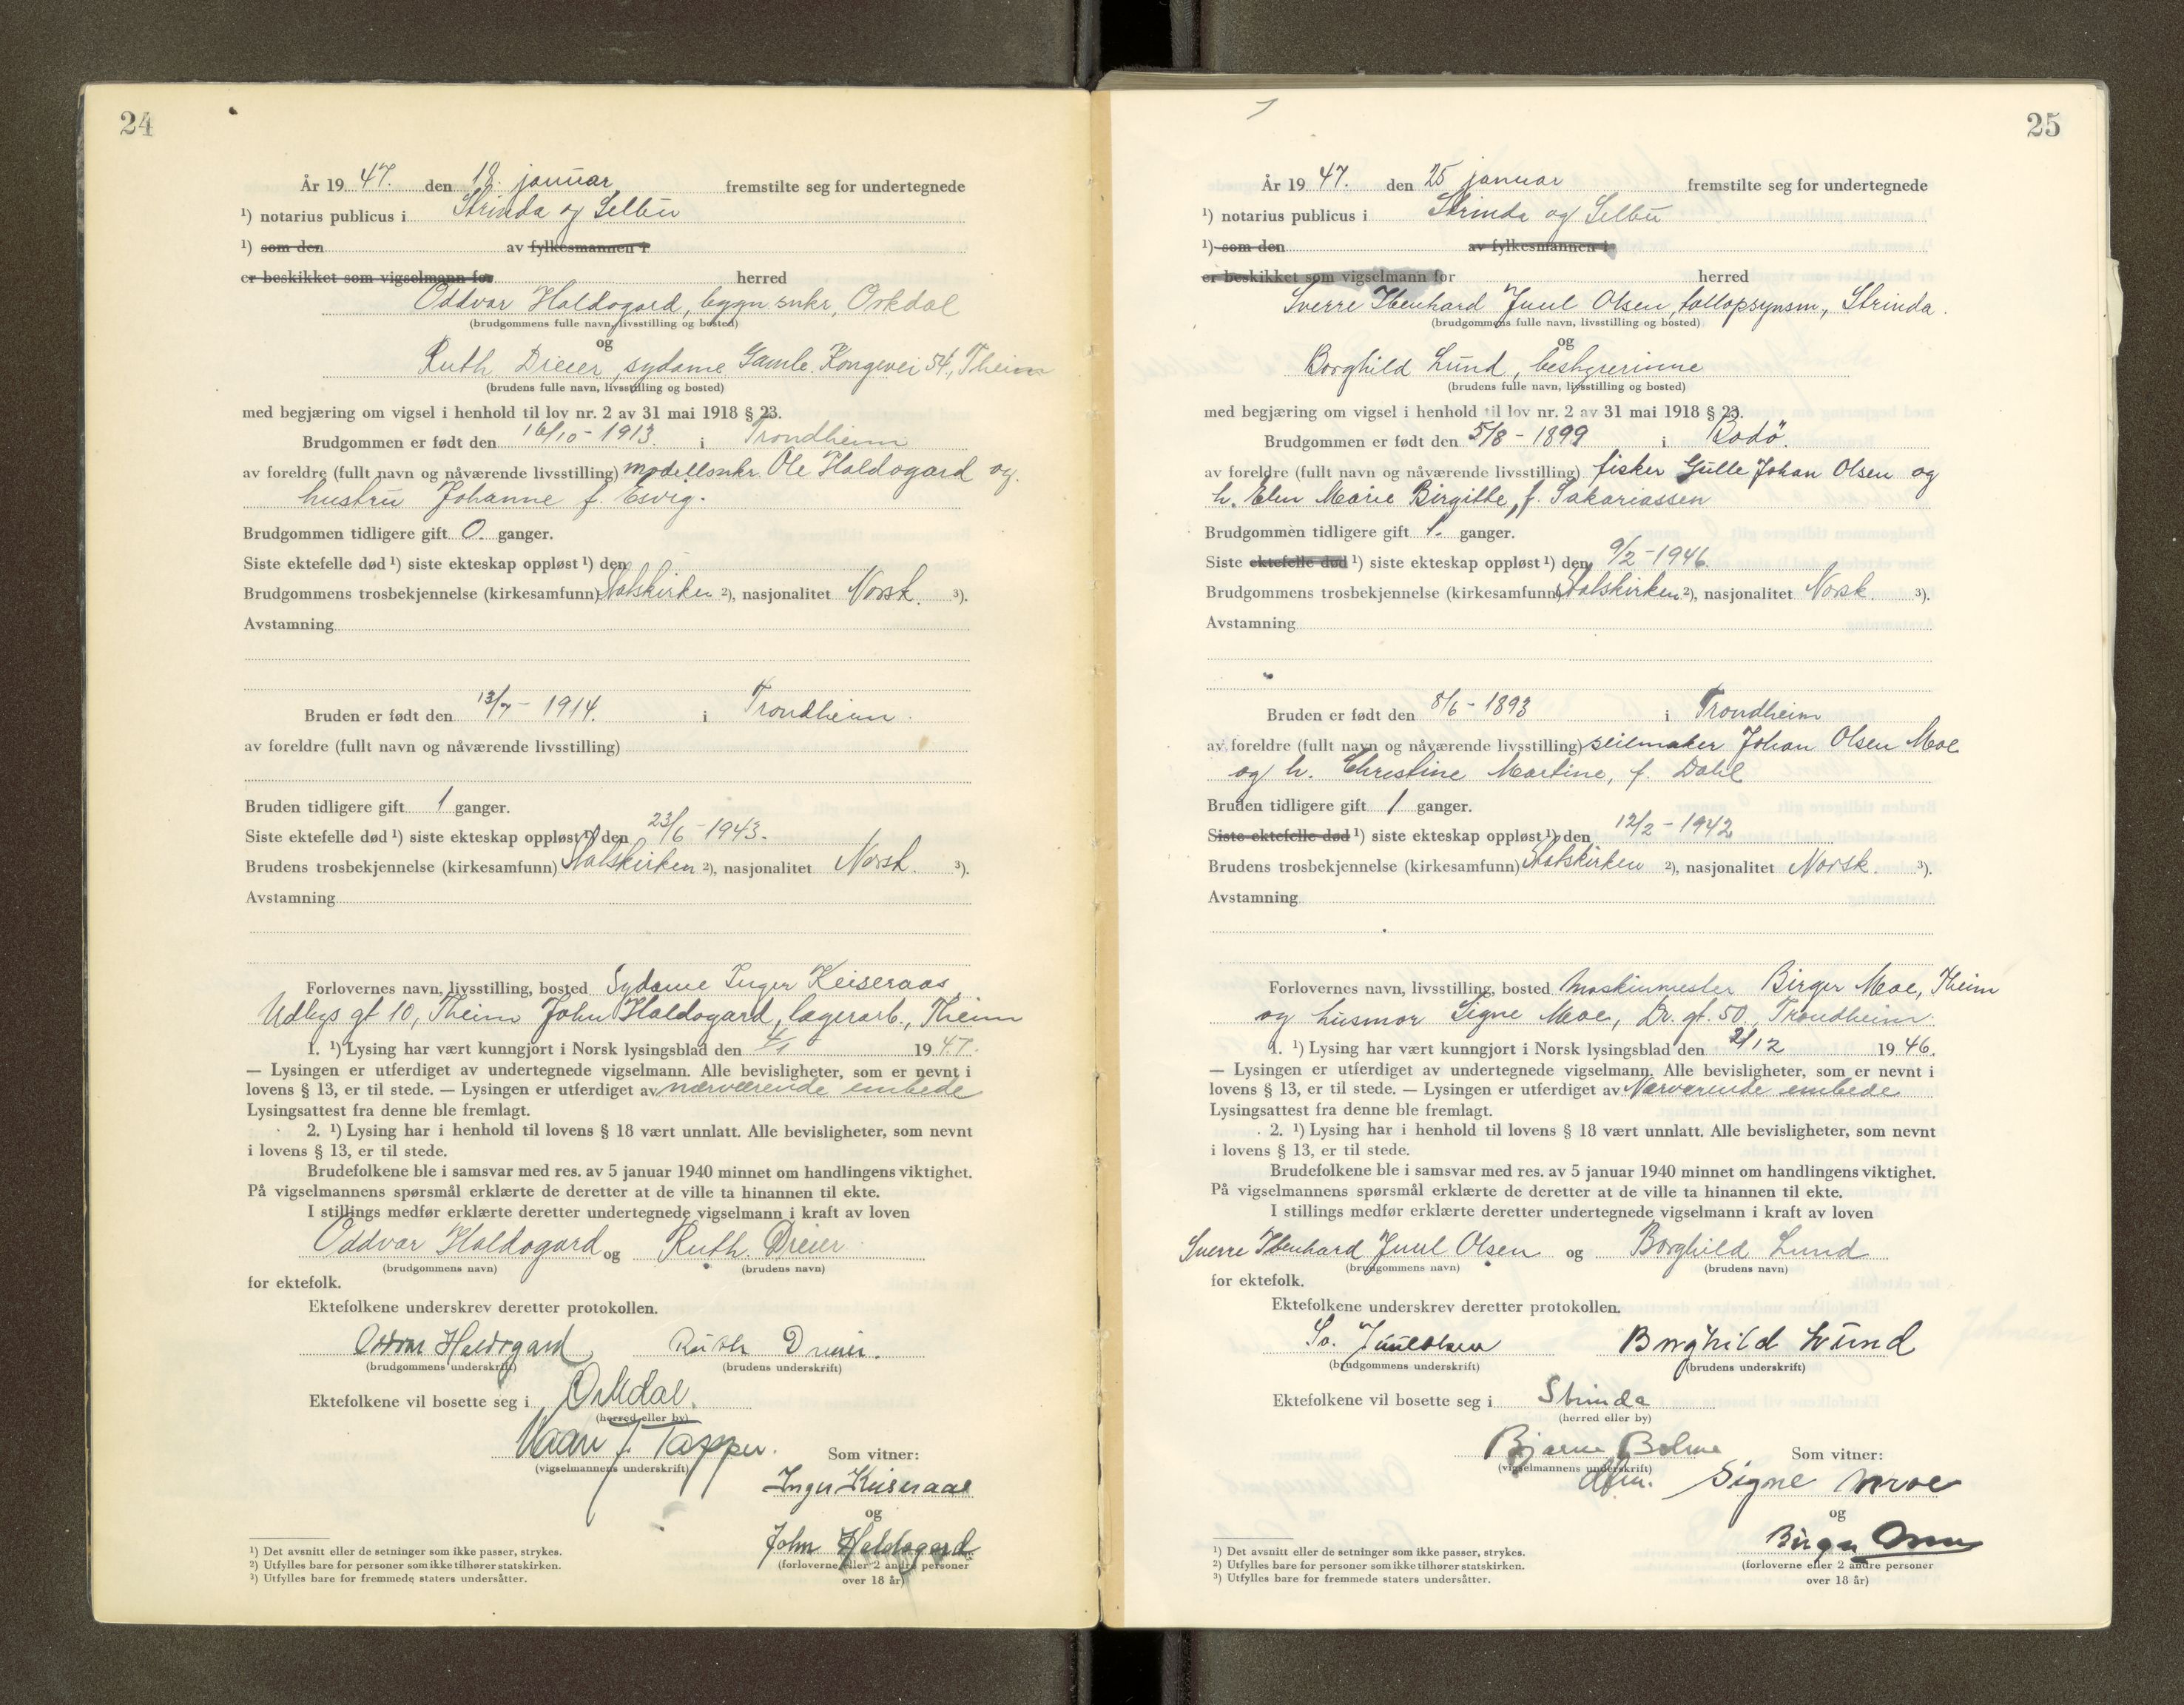 24
År 19 47. den 18. januar fremstilte seg for undertegnede
¹) notarius publicus i Strinda og Selbu
¹) som den av fylkesmannen i
er beskikket som vigselmann for herred
Oddvar Haldogard, bygn.snkr, Orkdal
(brudgommens fulle navn, livsstilling og bosted)
og
Ruth Dreier, sydame Gamle Kongevei 54, Theim
(brudens fulle navn, livsstilling og bosted)
med begjæring om vigsel i henhold til lov nr. 2 av 31 mai 1918 § 23.
Brudgommen er født den 16/10 - 1913. i Trondheim
av foreldre (fullt navn og nåværende livsstilling) modellsnkr. Ole Haldogard og
hustru Johanne f. Esvig.
Brudgommen tidligere gift 0. ganger.
Siste ektefelle død ¹) siste ekteskap oppløst ¹) den
Brudgommens trosbekjennelse (kirkesamfunn) Statskirken ²), nasjonalitet Norsk. ³).
Avstamning
Bruden er født den 13/7 - 1914. i Trondheim.
av foreldre (fullt navn og nåværende livsstilling)
Bruden tidligere gift 1 ganger.
Siste ektefelle død ¹) siste ekteskap oppløst ¹) den 23/6 - 1943.
Brudens trosbekjennelse (kirkesamfunn) Statskirken ²), nasjonalitet Norsk. ³).
Avstamning
Forlovernes navn, livsstilling, bosted Sydame Inger Keiseraas
Udbys gt 10, Theim John Haldogard, lagerarb., Theim
1. ¹) Lysing har vært kunngjort i Norsk lysingsblad den 4/1 19 47.
— Lysingen er utferdiget av undertegnede vigselmann. Alle bevisligheter, som er nevnt i
lovens § 13, er til stede. — Lysingen er utferdiget av nærværende embede
Lysingsattest fra denne ble fremlagt.
2. ¹) Lysing har i henhold til lovens § 18 vært unnlatt. Alle bevisligheter, som nevnt
i lovens § 13, er til stede.
Brudefolkene ble i samsvar med res. av 5 januar 1940 minnet om handlingens viktighet.
På vigselmannens spørsmål erklærte de deretter at de ville ta hinannen til ekte.
I stillings medfør erklærte deretter undertegnede vigselmann i kraft av loven
Oddvar Haldogard og Ruth Dreier
(brudgommens navn) (brudens navn)
for ektefolk.
Ektefolkene underskrev deretter protokollen.
Oddvar Haldogard Ruth Dreier.
(brudgommens underskrift) (brudens underskrift)
Ektefolkene vil bosette seg i Orkdal.
(herred eller by)
(vigselmannens underskrift) Som vitner:
Inger Keiseraas
og
John Haldogard
(forloverne eller 2 andre personer
over 18 år)
¹) Det avsnitt eller de setninger som ikke passer, strykes.
²) Utfylles bare for personer som ikke tilhører statskirken.
³) Utfylles bare for fremmede staters undersåtter.
25
År 19 47. den 25 januar fremstilte seg for undertegnede
¹) notarius publicus i Strinda og Selbu
¹) som den av fylkesmannen i
er beskikket som vigselmann for herred
Sverre Ibenhard Juul Olsen, tollopsynsm., Strinda.
(brudgommens fulle navn, livsstilling og bosted)
og
Borghild Lund, bestyrerinne
(brudens fulle navn, livsstilling og bosted)
med begjæring om vigsel i henhold til lov nr. 2 av 31 mai 1918 § 23.
Brudgommen er født den 5/8 - 1899 i Bodö.
av foreldre (fullt navn og nåværende livsstilling) fisker Gulle Johan Olsen og
h. Elen Marie Birgitte, f. Sakariassen
Brudgommen tidligere gift 1. ganger.
Siste ektefelle død ¹) siste ekteskap oppløst ¹) den 9/2 - 1946.
Brudgommens trosbekjennelse (kirkesamfunn) Statskirken ²), nasjonalitet Norsk. ³).
Avstamning
Bruden er født den 8/6 - 1893 i Trondheim
av foreldre (fullt navn og nåværende livsstilling) seilmaker Johan Olsen Moe
og h. Christine Martine, f. Dahl
Bruden tidligere gift 1 ganger.
Siste ektefelle død ¹) siste ekteskap oppløst ¹) den 12/2 - 1942
Brudens trosbekjennelse (kirkesamfunn) Statskirken ²), nasjonalitet Norsk. ³).
Avstamning
Forlovernes navn, livsstilling, bosted Maskinmester Birger Moe, Theim
og husmor Signe Moe, Dr. gt. 50, Trondheim.
1. ¹) Lysing har vært kunngjort i Norsk lysingsblad den 2/12 19 46.
— Lysingen er utferdiget av undertegnede vigselmann. Alle bevisligheter, som er nevnt i
lovens § 13, er til stede. — Lysingen er utferdiget av Nærværende embede
Lysingsattest fra denne ble fremlagt.
2. ¹) Lysing har i henhold til lovens § 18 vært unnlatt. Alle bevisligheter, som nevnt
i lovens § 13, er til stede.
Brudefolkene ble i samsvar med res. av 5 januar 1940 minnet om handlingens viktighet.
På vigselmannens spørsmål erklærte de deretter at de ville ta hinannen til ekte.
I stillings medfør erklærte deretter undertegnede vigselmann i kraft av loven
Sverre Ibenhard Juul Olsen og Borghild Lund
(brudgommens navn) (brudens navn)
for ektefolk.
Ektefolkene underskrev deretter protokollen.
Sv. Juul Olsen Borghild Lund
(brudgommens underskrift) (brudens underskrift)
Ektefolkene vil bosette seg i Strinda
(herred eller by)
Bjarne
(vigselmannens underskrift) Som vitner:
Signe Moe
og
Birger Moe
(forloverne eller 2 andre personer
over 18 år)
¹) Det avsnitt eller de setninger som ikke passer, strykes.
²) Utfylles bare for personer som ikke tilhører statskirken.
³) Utfylles bare for fremmede staters undersåtter.